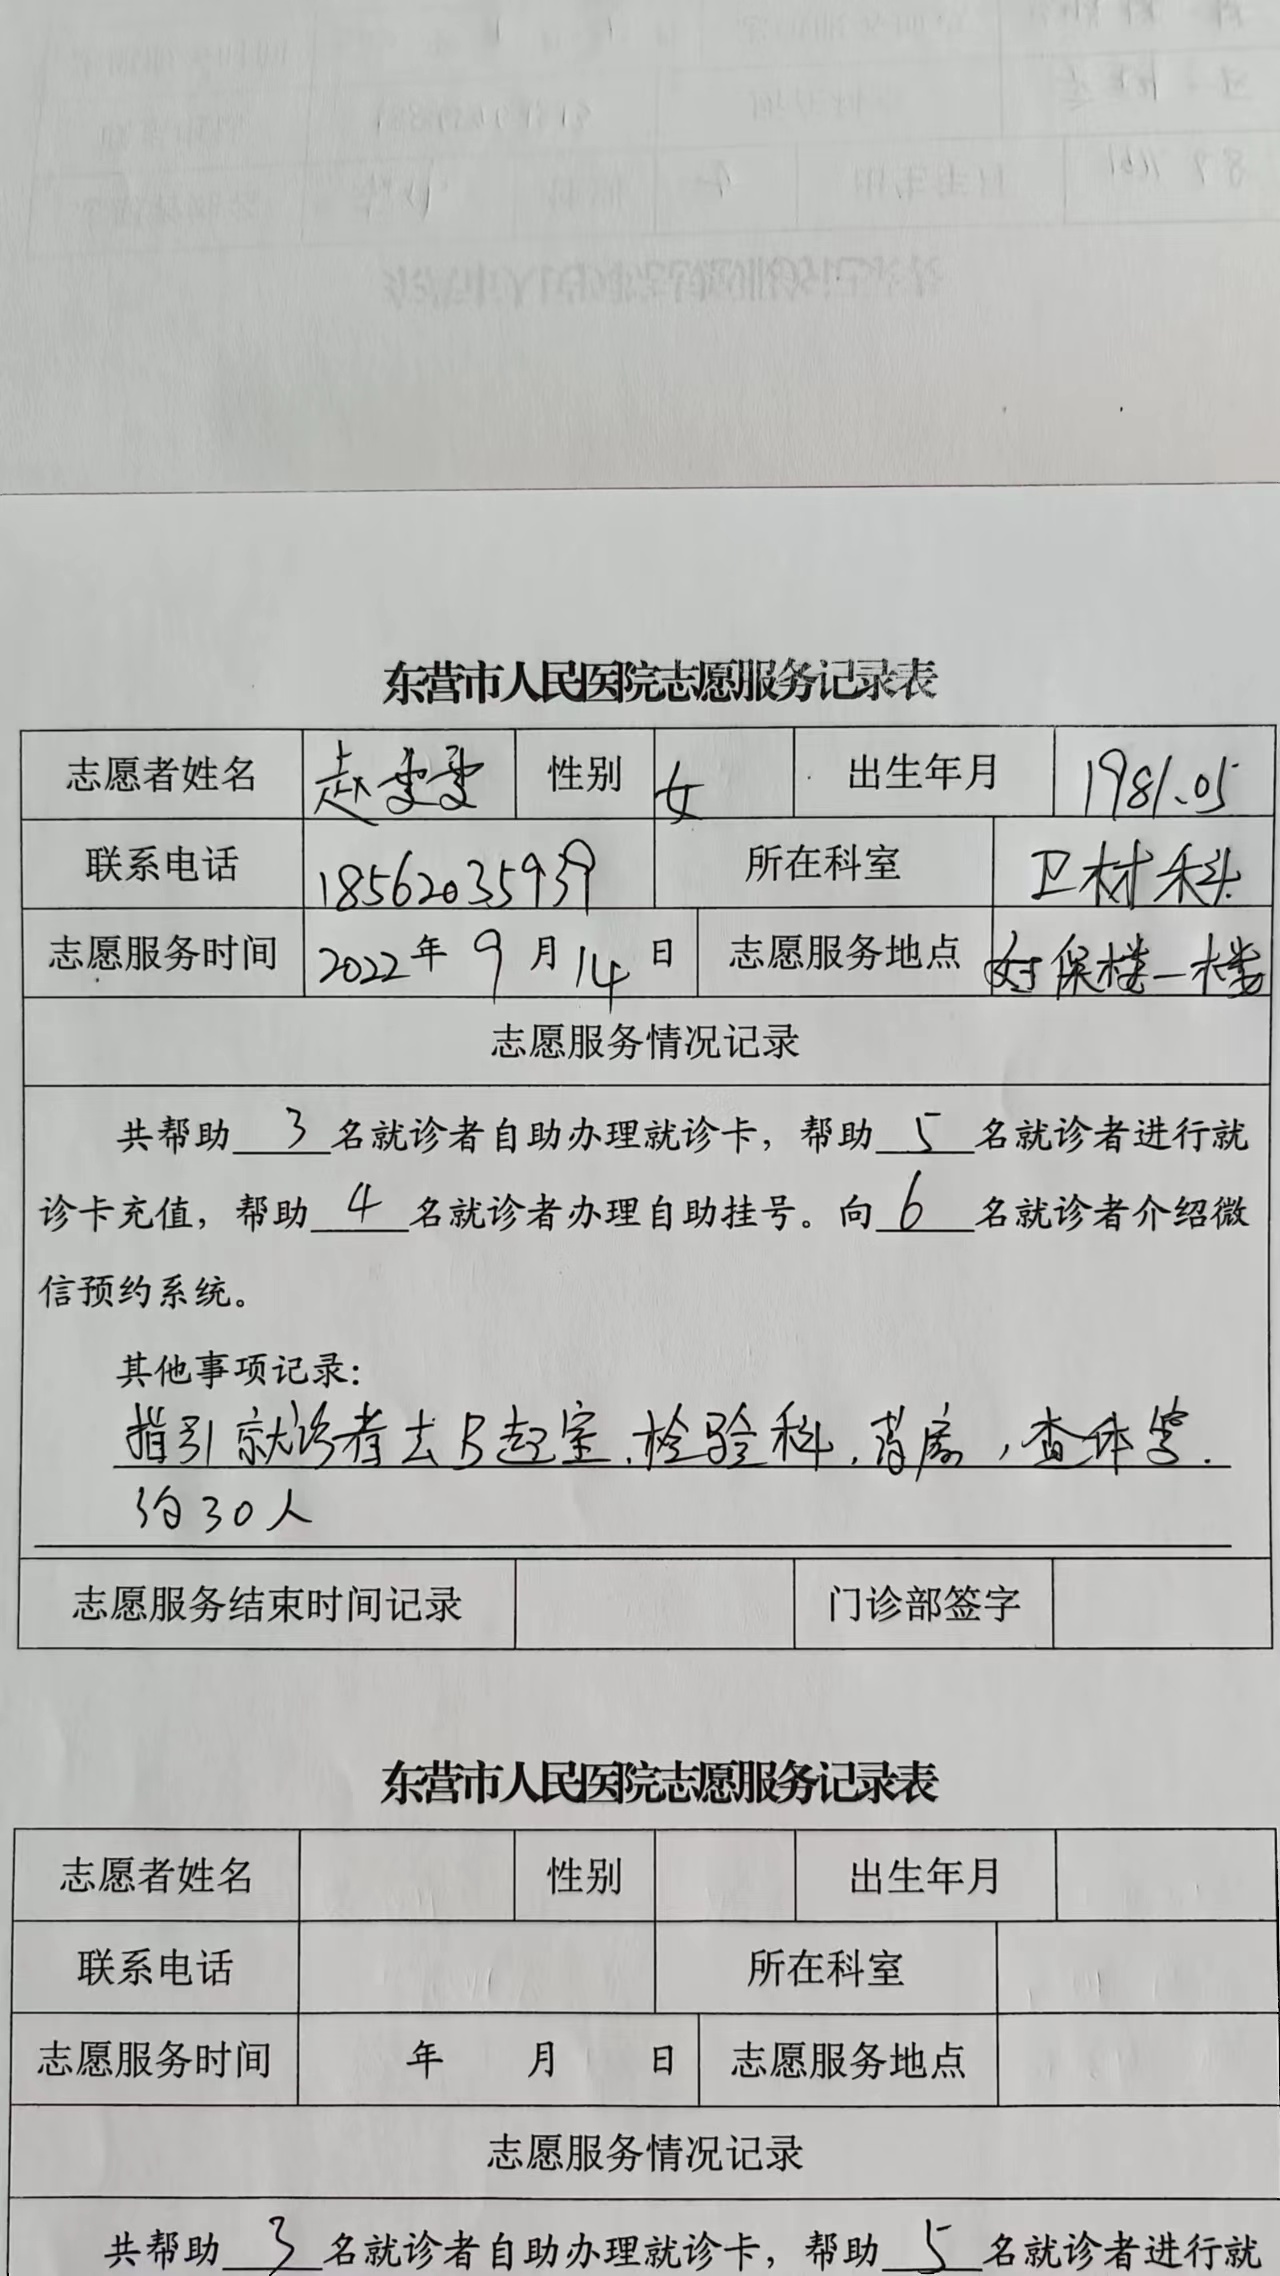 东营市人民医院志愿服务记录表
志愿者姓名 赵雯雯 性别 女 出生年月 1981.05
联系电话 18562035939 所在科室 卫材科
志愿服务时间 2022年9月14日 志愿服务地点 妇保楼一楼
志愿服务情况记录
共帮助 3 名就诊者自助办理就诊卡，帮助 5 名就诊者进行就
诊卡充值，帮助 4 名就诊者办理自助挂号。向 6 名就诊者介绍微
信预约系统。
其他事项记录：
指引就诊者去B超室、检验科、药房，查体等.
约30人
志愿服务结束时间记录 门诊部签字
东营市人民医院志愿服务记录表
志愿者姓名 性别 出生年月
联系电话 所在科室
志愿服务时间 年 月 日 志愿服务地点
志愿服务情况记录
共帮助 3 名就诊者自助办理就诊卡，帮助 5 名就诊者进行就